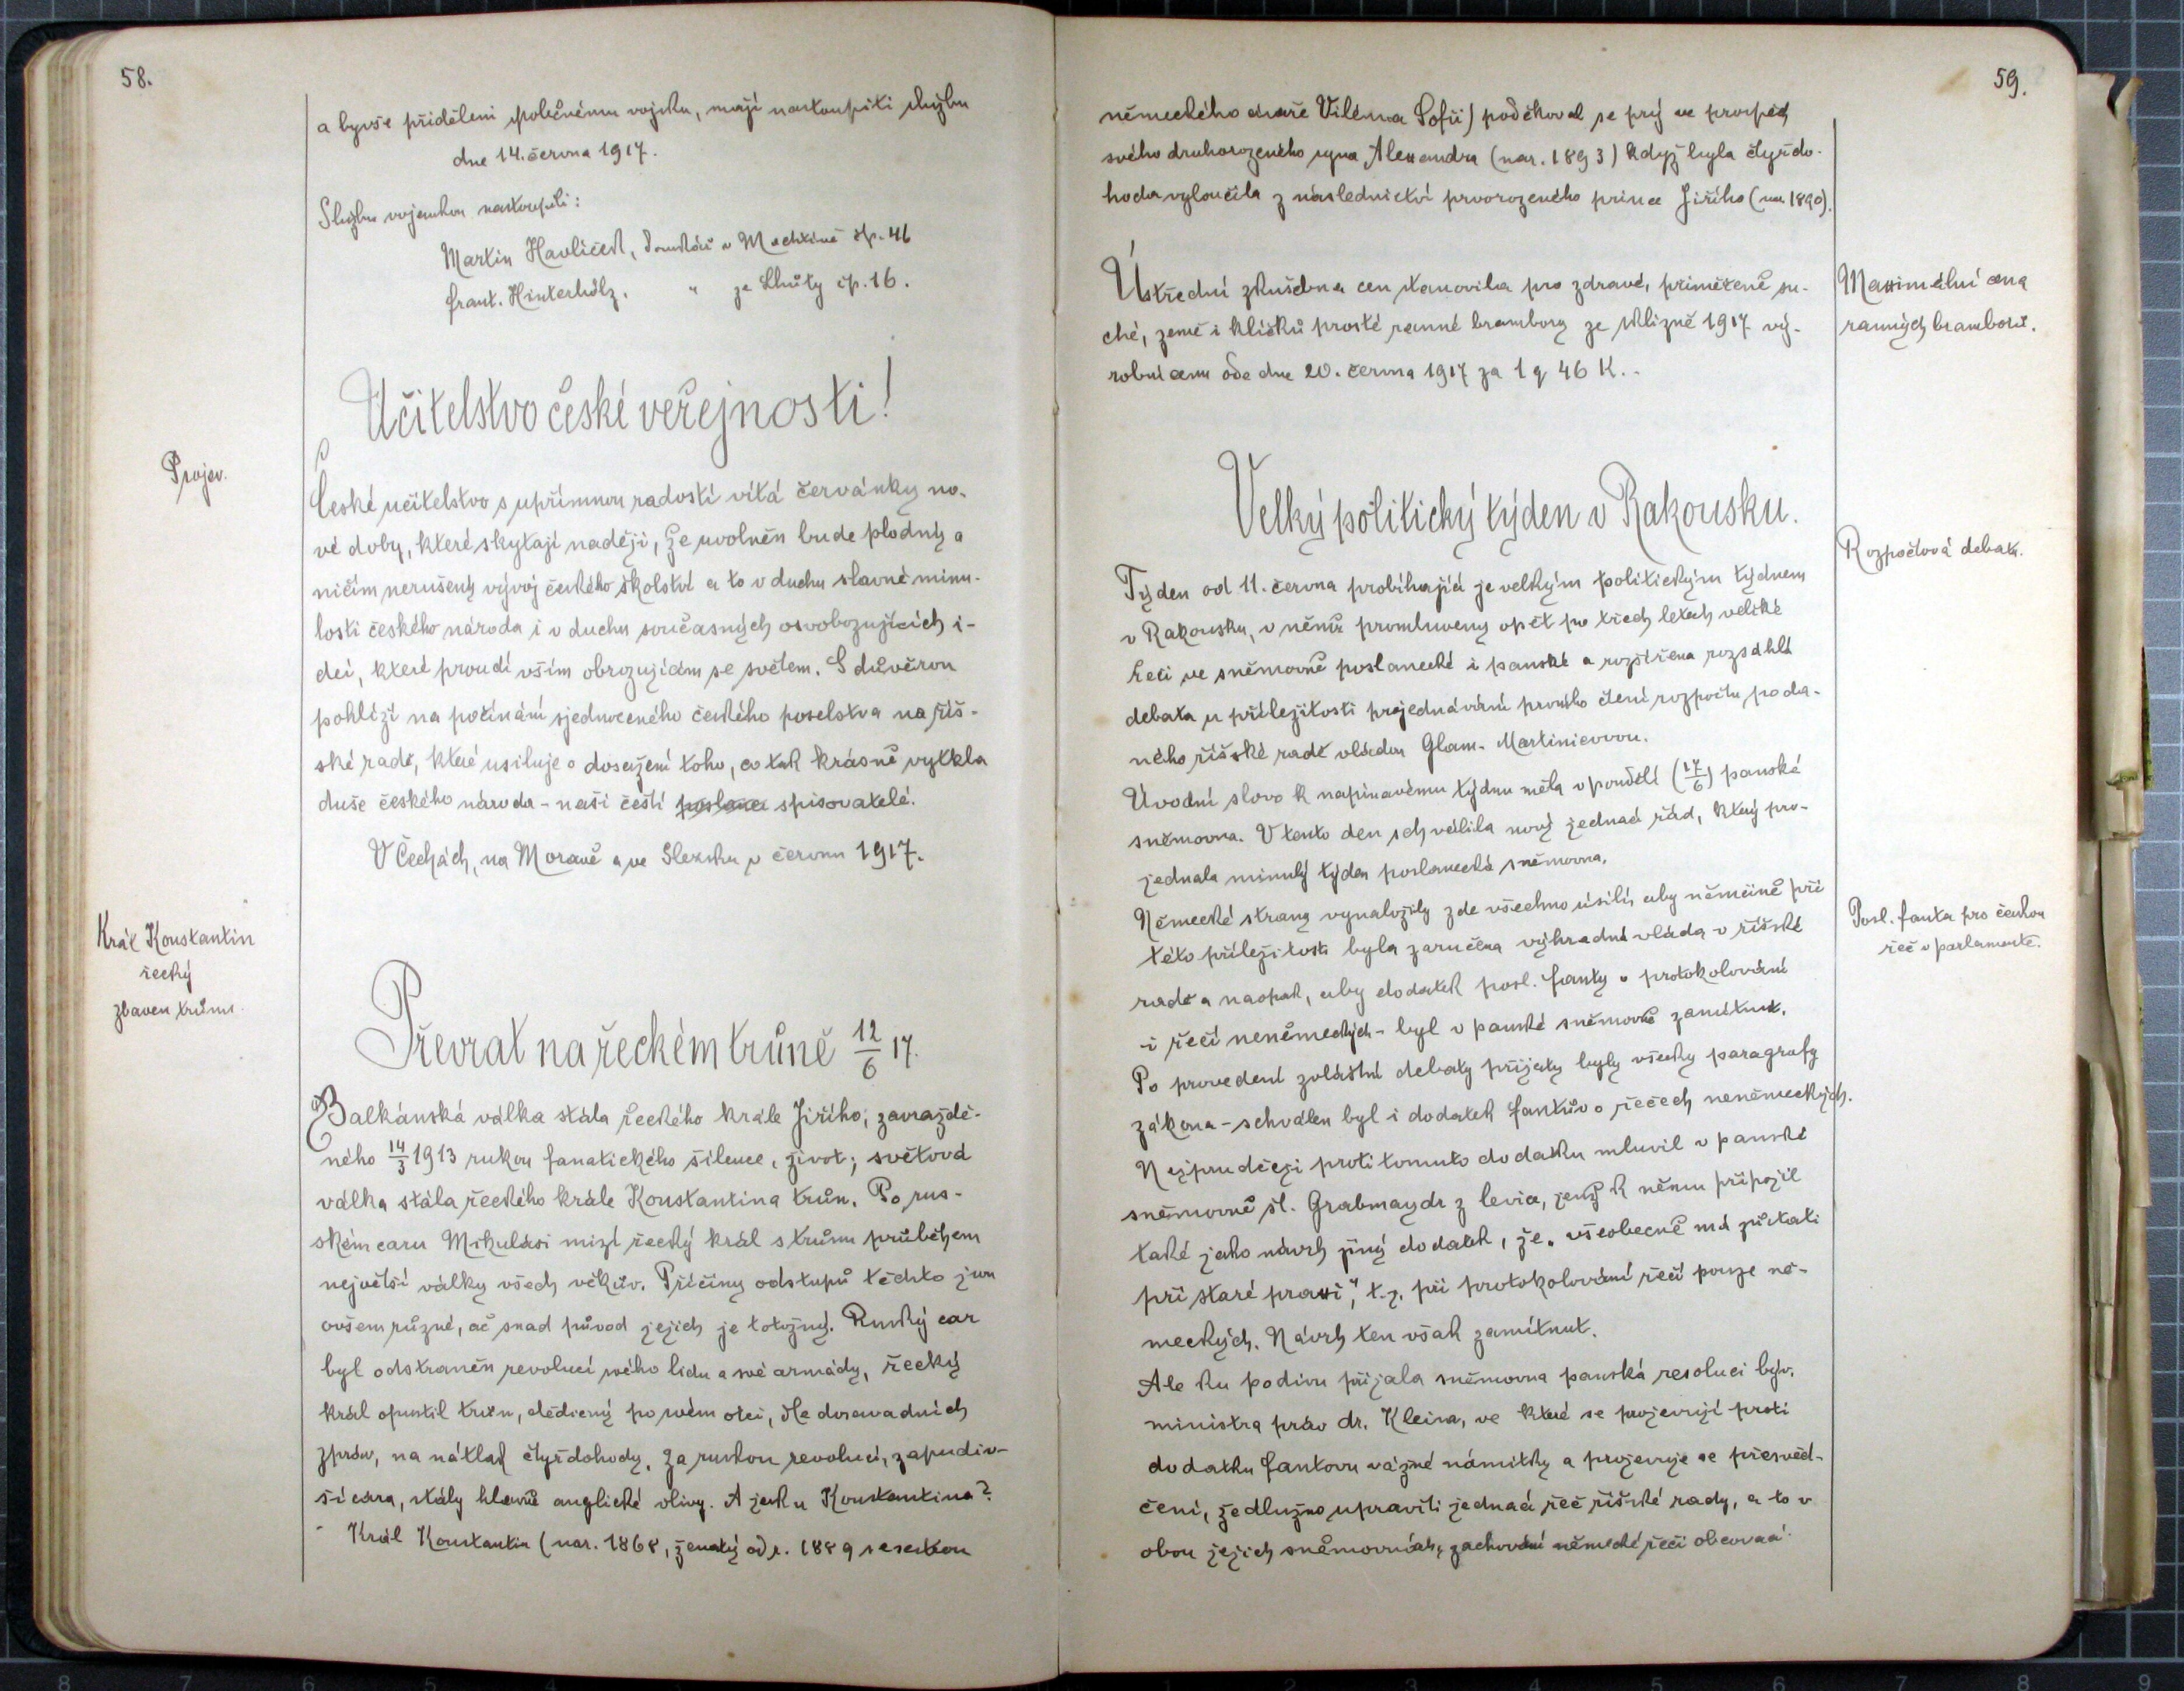 58.
a byvše přiděleni společnému vojsku, mají nastoupiti službu
dne 14. června 1917.
Službu vojenskou nastoupili:
Martin Havlíček, domkář v Mechtíně čp. 46
Frant. Hinterhölz. " ze Lhůty čp. 16.
Učitelstvo české veřejnosti!
Projev.
České učitelstvo s upřímnou radostí vítá červánky no-
vé doby, které skytají naději, že uvolněn bude plodný a
ničím nerušený vývoj českého školství a to v duchu slavné minu-
losti českého národa i v duchu současných osvobozujících i-
deí, které proudí vším obrozujícím se světem. S důvěrou
pohlíží na počínání sjednoceného českého poselstva na říš-
ské radě, které usiluje o dosažení toho, co tak krásně vytkla
duše českého národa - naši čeští spisovatelé.
V Čechách, na Moravě a ve Slezsku v červnu 1917.
Král Konstantin
řecký
zbaven trůnu.
Převrat na řeckém trůně 12/6 17.
Balkánská válka stála řeckého krále Jiřího, zavraždě-
ného 14/3 1913 rukou fanatického šílence, život; světová
válka stála řeckého krále Konstantina trůn. Po rus-
kém caru Mikuláši mizí řecký král s trůnu průběhem
největší války všech věkův. Příčiny odstupů těchto jsou
ovšem různé, ač snad původ jejich je totožný. Ruský car
byl odstraněn revolucí svého lidu a své armády, řecký
král opustil trůn, děděný po svém otci, dle dosavadních
zpráv, na nátlak čtyřdohody. Za ruskou revolucí, zapudiv-
ší cara, stály hlavně anglické vlivy. A jak u Konstantina?
Král Konstantin (nar. 1868, ženatý od r. 1889 se sestrou
59.
německého císaře Viléma Sofií) poděkoval se prý ve prospěch
svého druhorozeného syna Alexandra (nar. 1893) když byla čtyřdo-
hoda vyloučila z následnictví prvorozeného prince Jiřího (nar 1890).
Ústřední zkušebna cen stanovila pro zdravé, přiměřeně su-
ché, země i klíčků prosté ranné brambory ze sklizně 1917 vý-
robní cenu ode dne 20. června 1917 za 1 q 46 K.-
Maximální cena
ranných bramborů.
Velký politický týden v Rakousku.
Rozpočtová debata.
Týden od 11. června probíhající je velkým politickým týdnem
v Rakousku, v němž promluveny opět po třech letech veliké
řeči ve sněmovně poslanecké i panské a rozpředena rozsáhlá
debata u příležitosti projednávání prvního čtení rozpočtu poda-
ného říšské radě vládou Glam-Martinicovou.
Úvodní slovo k napínavému týdnu měla v pondělí (17/6) panská
sněmovna. V tento den schválila nový jednací řád, který pro-
jednala minulý týden poslanecká sněmovna.
Německé strany vynaložily zde všechno úsilí, aby němčině při
této příležitosti byla zaručena výhradní vláda v říšské
radě a naopak, aby dodatek posl. Fanty o protokolování
-i řečí neněmeckých- byl v panské sněmovně zamítnut.
Posl. Fanta pro českou
řeč v parlamentě.
Po provedení zvláštní debaty přijaty byly všecky paragrafy
zákona - schválen byl i dodatek Fantův o řečech neněmeckých.
Nejprudčeji proti tomuto dodatku mluvil v panské
sněmovně šl. Grabmayer z Levice, jenž k němu připojil
také jako návrh jiný dodatek, že „všeobecně má zůstati
při staré praxi", t.j. při protokolování řečí pouze ně-
meckých. Návrh ten však zamítnut.
Ale ku podivu přijala sněmovna panská resoluci býv.
ministra práv dr. Kleina, ve které se projevují proti
dodatku Fantovu vážné námitky a projevuje se přesvěd-
čení, že dlužno upraviti jednací řeč říšské rady, a to v
obou jejich sněmovnách, zachování německé řeči obcovací